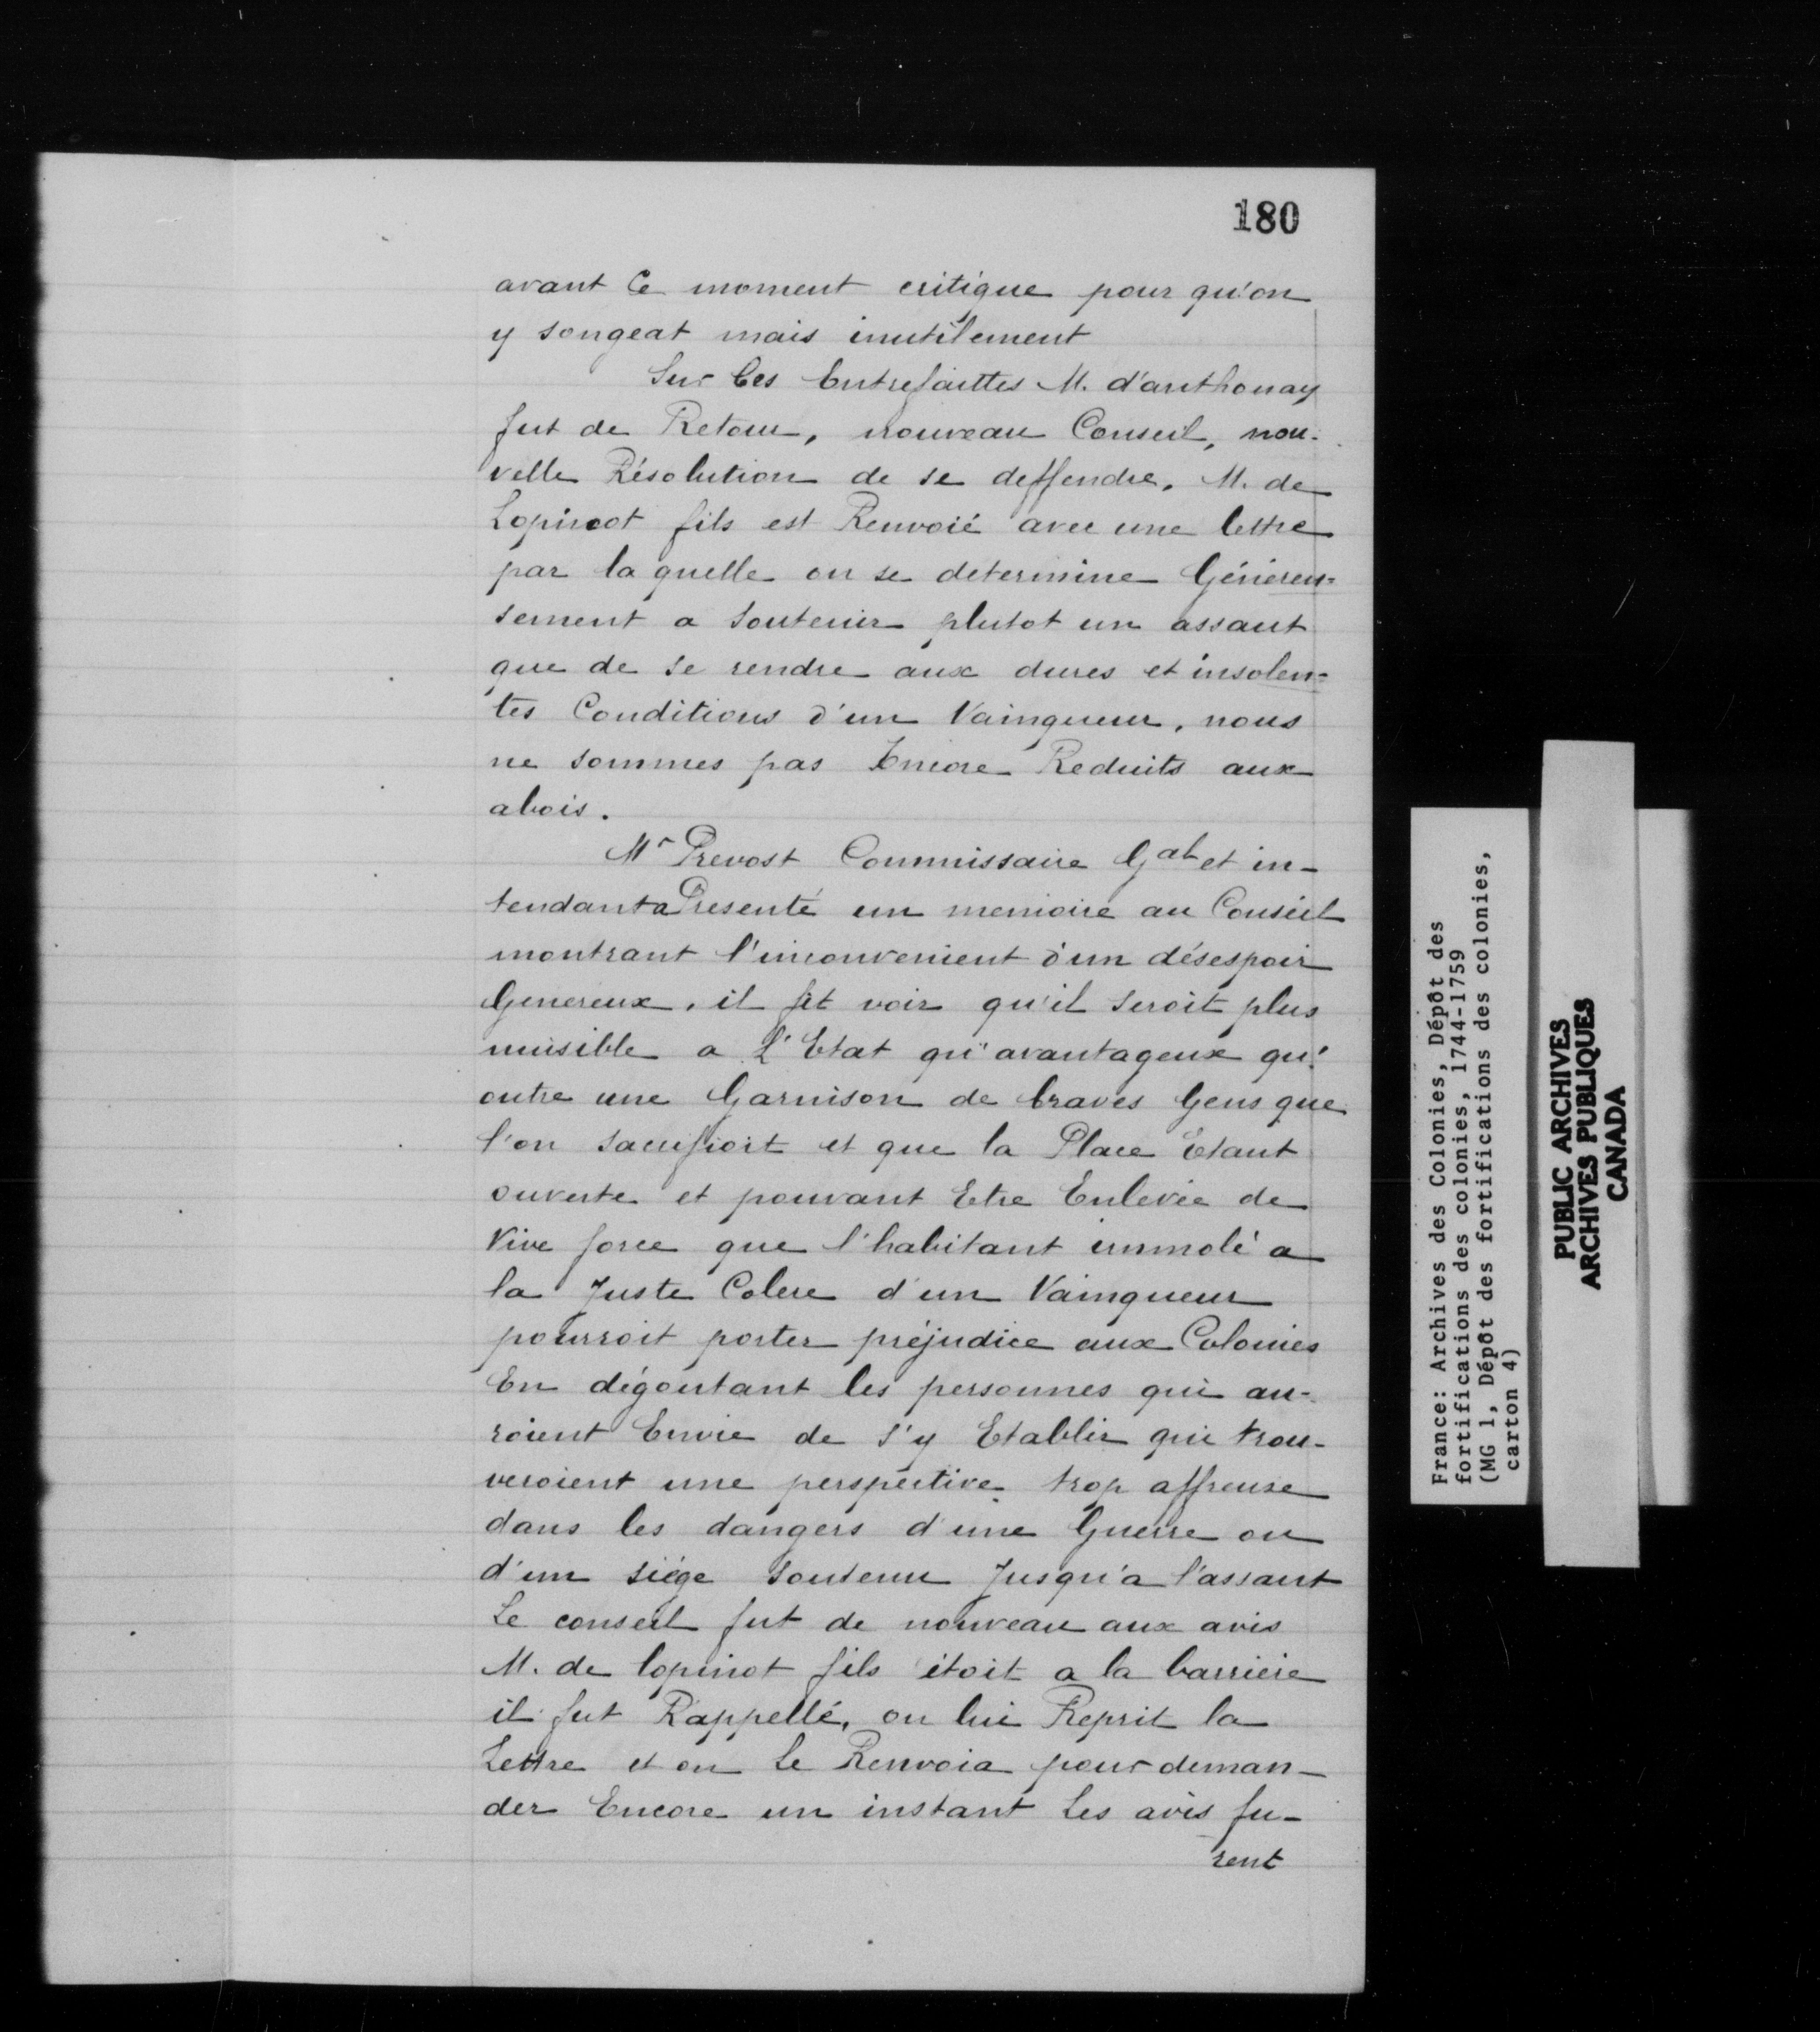 180
avant Ce moment critique pour qu'on
y songeat mais inutilement
Sur Ces Entrefaittes M. d'anthonay
fut de Retour, nouveau Conseil, nou-
velle Résolution de se deffendre. M. de
Lopinot fils est Renvoié avec une lettre
par la quelle on se determine Généreu=
sement a soutenir plutot un assaut
que de se rendre aux dures et insolen=
tes Conditions d'un Vainqueur, nous
ne sommes pas Encore Reduits aux
abois.
Mr Prevost Commissaire Gal et in-
tendant a Presenté un memoire au Conseil
montrant l'inconvenient d'un désespoir
Genereux, il fit voir qu'il seroit plus
nuisible a L'Etat qu'avantageux qu'
outre une Garnison de braves Gens que
l'on sacrifioit et que la Place Etant
ouverte et pouvant Etre Enlevée de
Vive force que l'habitant immolé a
la Juste Colere d'un Vainqueur
pourroit porter préjudice aux Colonies
En dégoutant les personnes qui au-
roient Envie de s'y Etablir qui trou-
veroient une perspective trop affreuse
dans les dangers d'une Guerre ou
d'un siége soutenu Jusqu'a l'assaut
Le conseil fut de nouveau aux avis
M. de lopinot fils étoit a la barriere
il fut Rappellé, on lui Reprit la
Lettre et on Le Renvoia pour deman-
der Encore un instant Les avis fu-
rent
France: Archives des Colonies, Dépôt des
fortifications des colonies, 1744-1759
(MG 1, Dépôt des fortifications des colonies,
carton 4)
PUBLIC ARCHIVES
ARCHIVES PUBLIQUES
CANADA